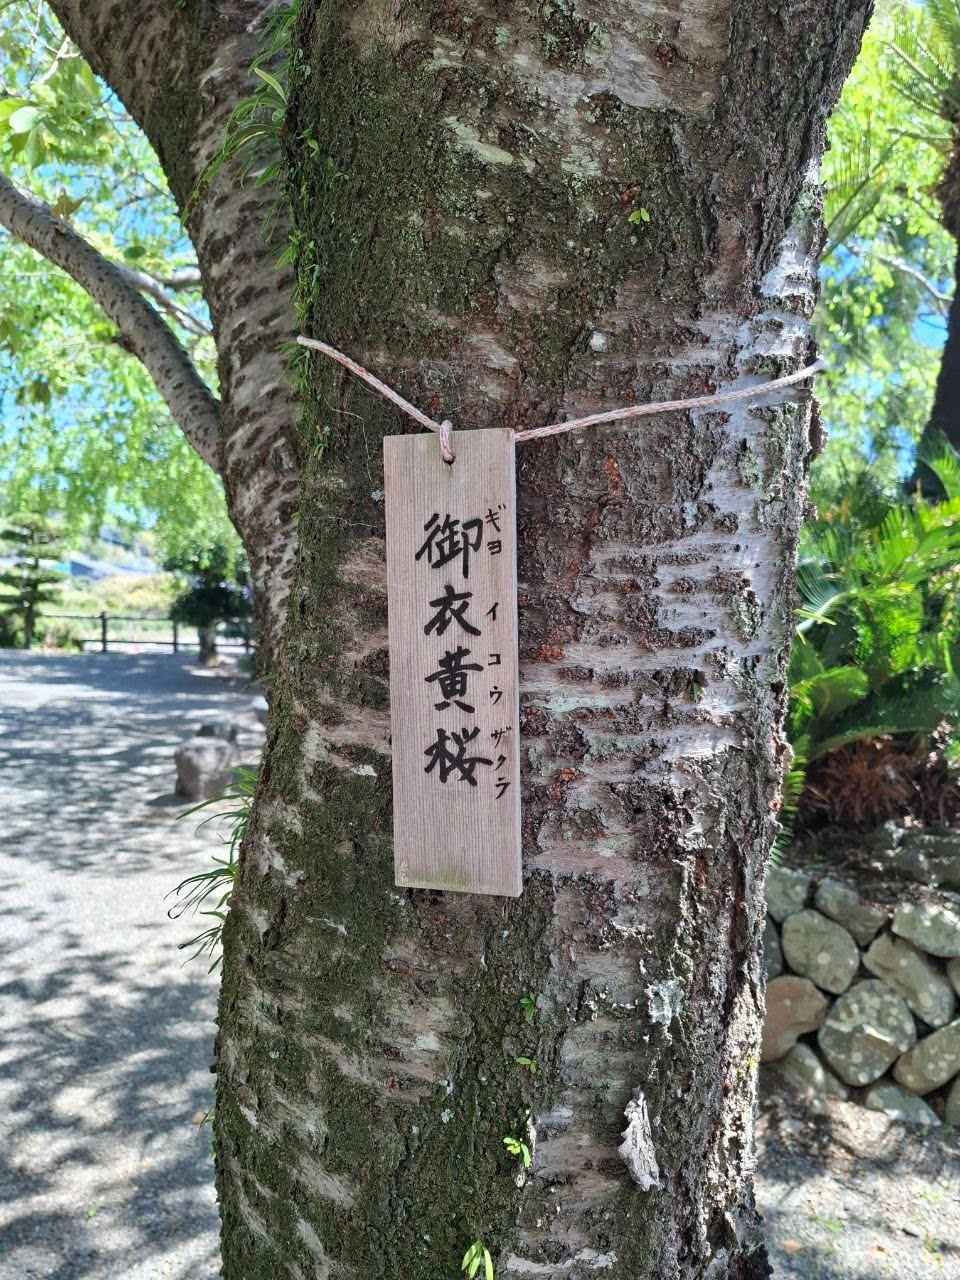 御衣黄桜
ギヨイコウザクラ